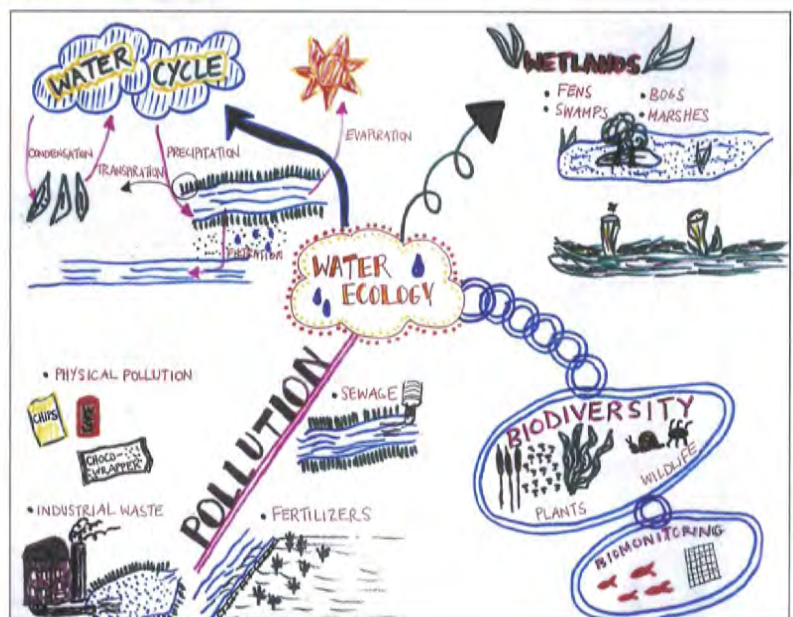 WATER CYCLE
CONDENSATION
TRANSPIRATION
PRECIPITATION
EVAPORATION
FILTRATION
WETLANDS
• FENS
• BOGS
• SWAMPS
• MARSHES
WATER
ECOLOGY
POLLUTION
• PHYSICAL POLLUTION
CHIPS
CHOCO-
WRAPPER
• SEWAGE
• INDUSTRIAL WASTE
• FERTILIZERS
BIODIVERSITY
PLANTS
WILDLIFE
BIOMONITORING